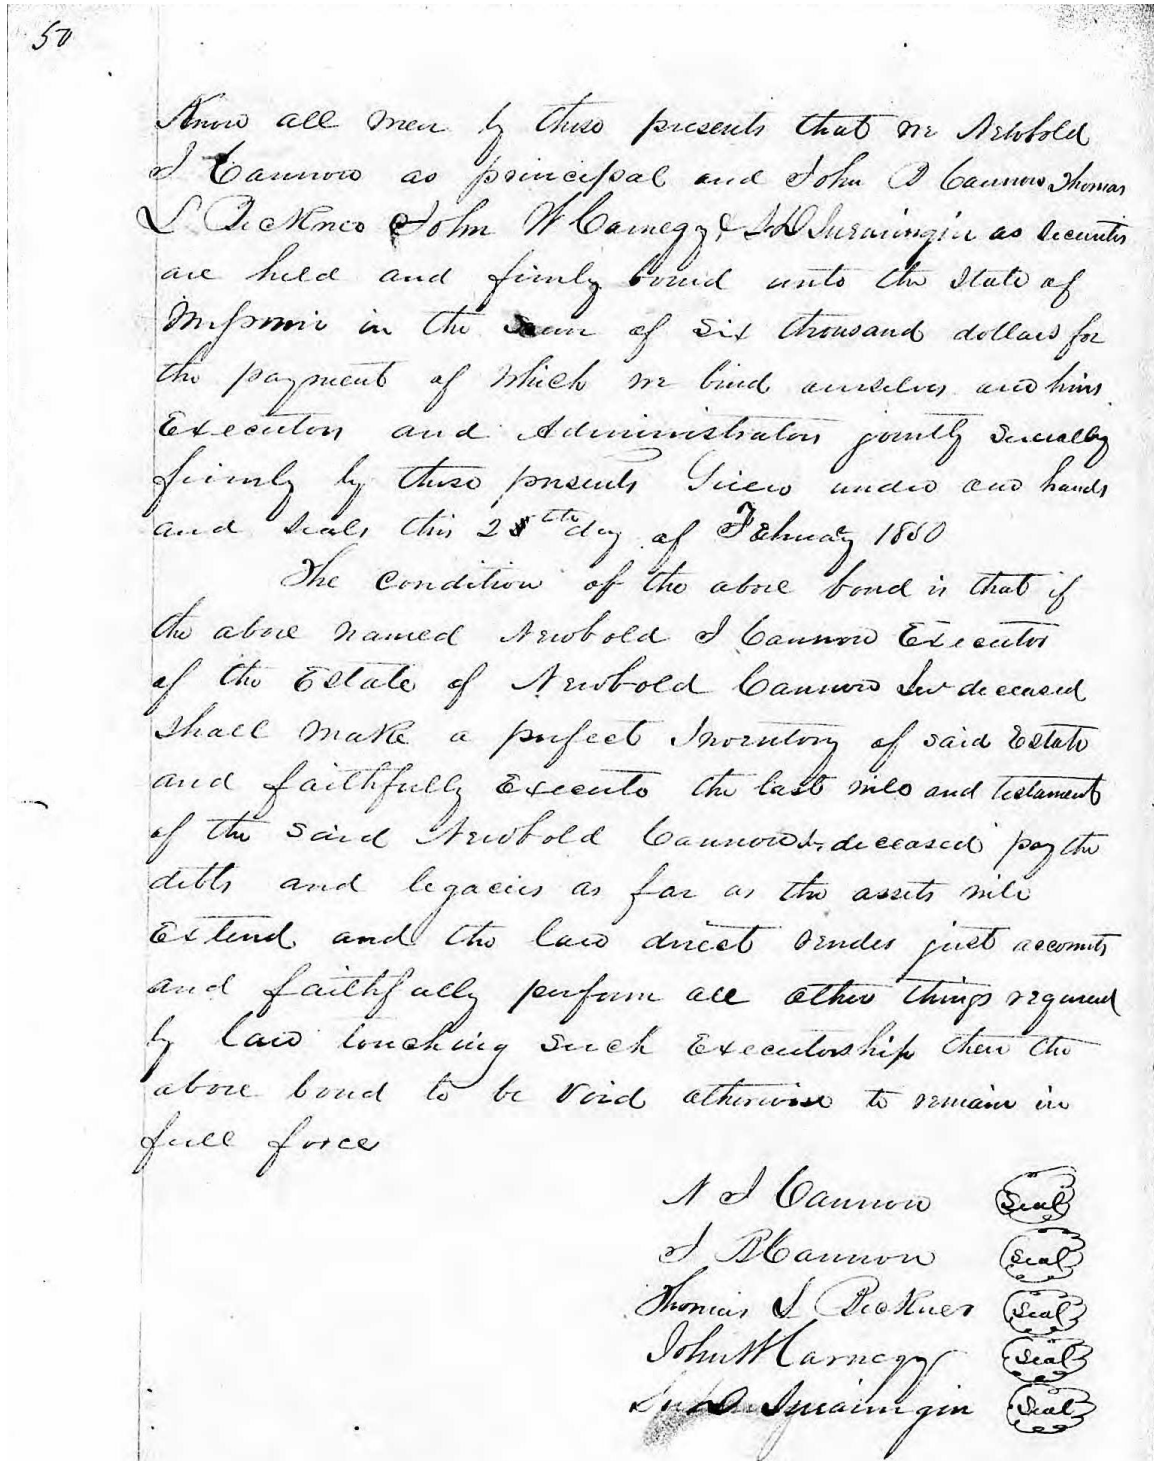 50
Know all men by these presents that we Newbold
J Cannon as principal and John B Cannon Thomas
L Bickner & John W Carnegy & Swearingin as securities
are held and firmly bound unto the State of
Missouri in the sum of Six thousand dollars for
the payment of which we bind ourselves and heirs
Executors and Administrators jointly severally
firmly by these presents Given under our hands
and seals this 25th day of February 1850
The condition of the above bond is that if
the above named Newbold J Cannon Executor
of the Estate of Newbold Cannon Senr deceased
shall make a perfect Inventory of said Estate
and faithfully Execute the last will and testament
of the said Newbold Cannon Sr deceased pay the
debts and legacies as far as the assets will
Extend and the law direct render just accounts
and faithfully perform all other things required
by law touching such Executorship then the
above bond to be void otherwise to remain in
full force
N J Cannon Seal
J B Cannon Seal
Thomas L Bickner Seal
John W Carnegy Seal
D Swearingin Seal